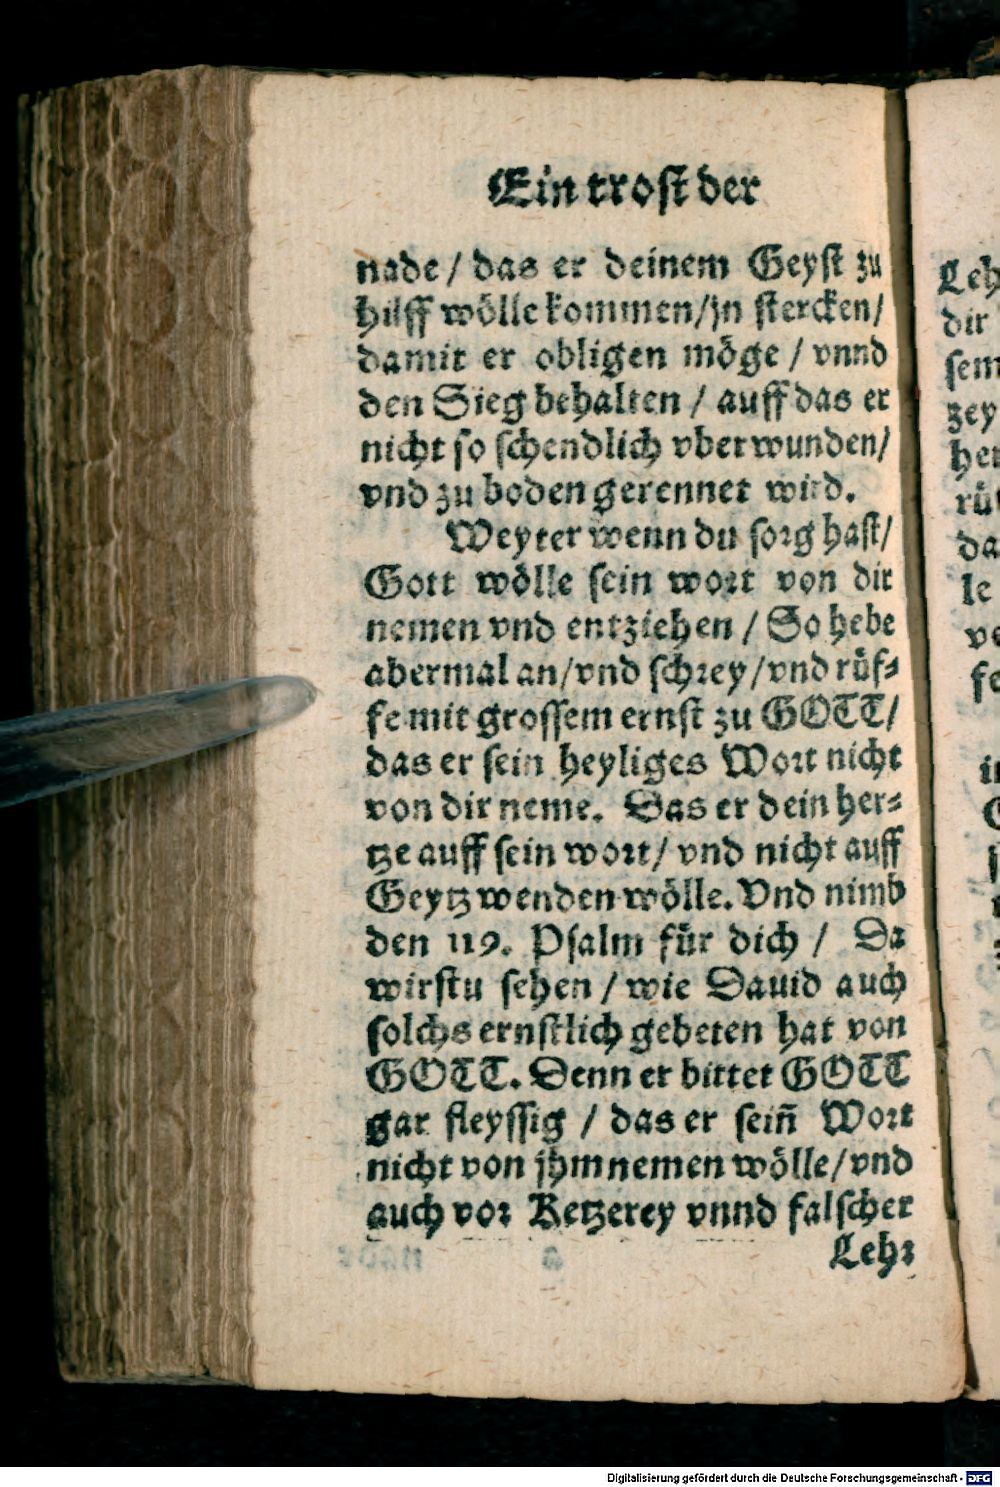 Ein trost der
nade / das er deinem Geyst zu
hilff wölle kommen/jn stercken/
damit er obligen möge / vnnd
den Sieg behalten / auff das er
nicht so schendlich vberwunden/
vnd zu boden gerennet wird.
Weyter wenn du sorg hast/
Gott wölle sein wort von dir
nemen vnd entziehen / So hebe
abermal an/vnd schrey/vnd rüf-
fe mit grossem ernst zu GOTT/
das er sein heyliges Wort nicht
von dir neme. Das er dein her-
tze auff sein wort/ vnd nicht auff
Geytz wenden wölle. Vnd nimb
den 119. Psalm für dich / Da
wirstu sehen / wie Dauid auch
solchs ernstlich gebeten hat von
GOTT. Denn er bittet GOTT
gar fleyssig / das er sein̄ Wort
nicht von jhm nemen wölle/vnd
auch vor Ketzerey vnnd falscher
Lehr
Leh
dir
sem
zey
her
rü
da
le
ve
fe
Digitalisierung gefördert durch die Deutsche Forschungsgemeinschaft - DFG